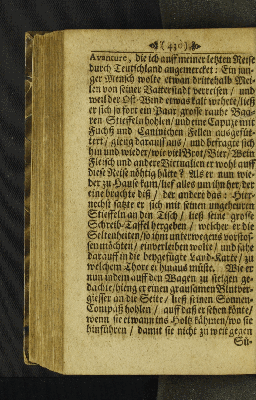 ( 430 )
Avanture, die ich auff meiner letzten Reise
durch Teutschland angemercket: Ein jun-
ger Mensch wolte etwan drittehalb Mei-
len von seiner Vatterstadt verreisen / und
weil der Ost-Wind etwas kalt wehete / ließ
er sich so fort ein Paar grosse rauhe
ren Stieffeln hohlen / und eine Capuze mit
Fuchß und Caninichen Fellen ausgefüt-
tert / gieng darauff aus / und befragte sich
hin und wieder / wie viel Brot / Bier / Wein
Fleisch und andere Victualien er wohl auff
diese Reise nöhtig hätte? Als er nun wie-
der zu Hause kam / lief alles um ihn her, der
eine brachte diß / der andere das: Hier-
nechst satzte er sich mit seinen ungeheuren
Stieffeln an den Tisch / ließ seine grosse
Schreib-Taffel hergeben / welcher er die
Seltenheiten / so ihm unterwegens vorstos-
sen möchten / einverleiben wolte / und sahe
darauff in die beygefügte Land-Karte / zu
welchem Thore er hinaus müste. Wie er
nun indem auff den Wagen zu steigen ge-
dachte / hieng er einen grausamen Blutver-
giesser an die Seite / ließ seinen Sonnen-
Compaß hohlen / auff daß er sehen könte /
wenn sie etwann ins Holtz kähmen / wo sie
hinführen / damit sie nicht zu weit gegen
Sü-